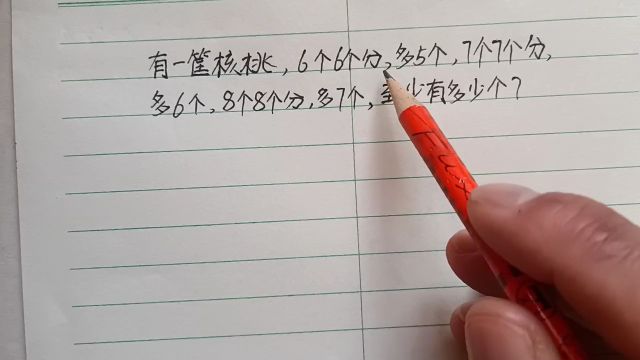 有一筐核桃，6个6个分，多5个，7个7个分，
多6个，8个8个分，多7个，至少有多少个？